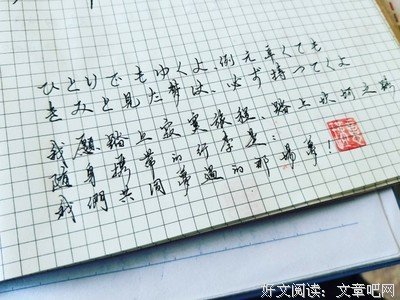 ひとりでもゆくよ、例え辛くても
きみと見た夢は、必ず持ってくよ
我願踏上寂寞旅程、踏上坎坷之路
隨身攜帶的行李是:
我們共同夢過的那場夢!
好文阅读:文章吧网